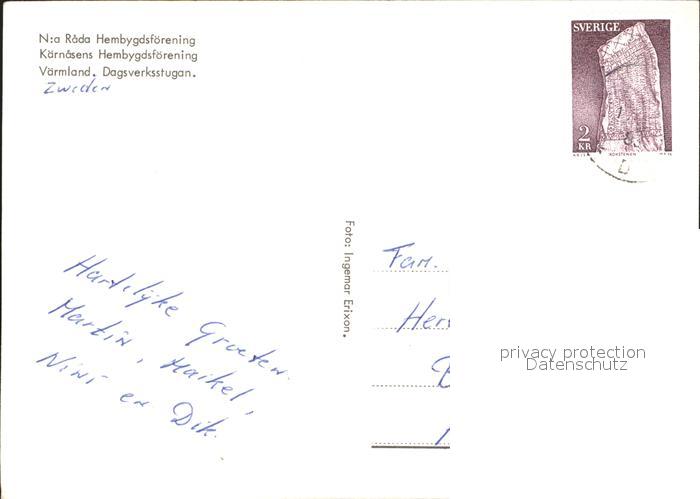 N:a Råda Hembygdsförening
Kärnåsens Hembygdsförening
Värmland. Dagsverksstugan.
Zweden
SVERIGE
2
KR
RÖKSTENEN
Foto: Ingemar Erixon.
Hartelijke Groeten.
Martin, Maikel,
Nini en Dik.
Fam.
Her
privacy protection
Datenschutz